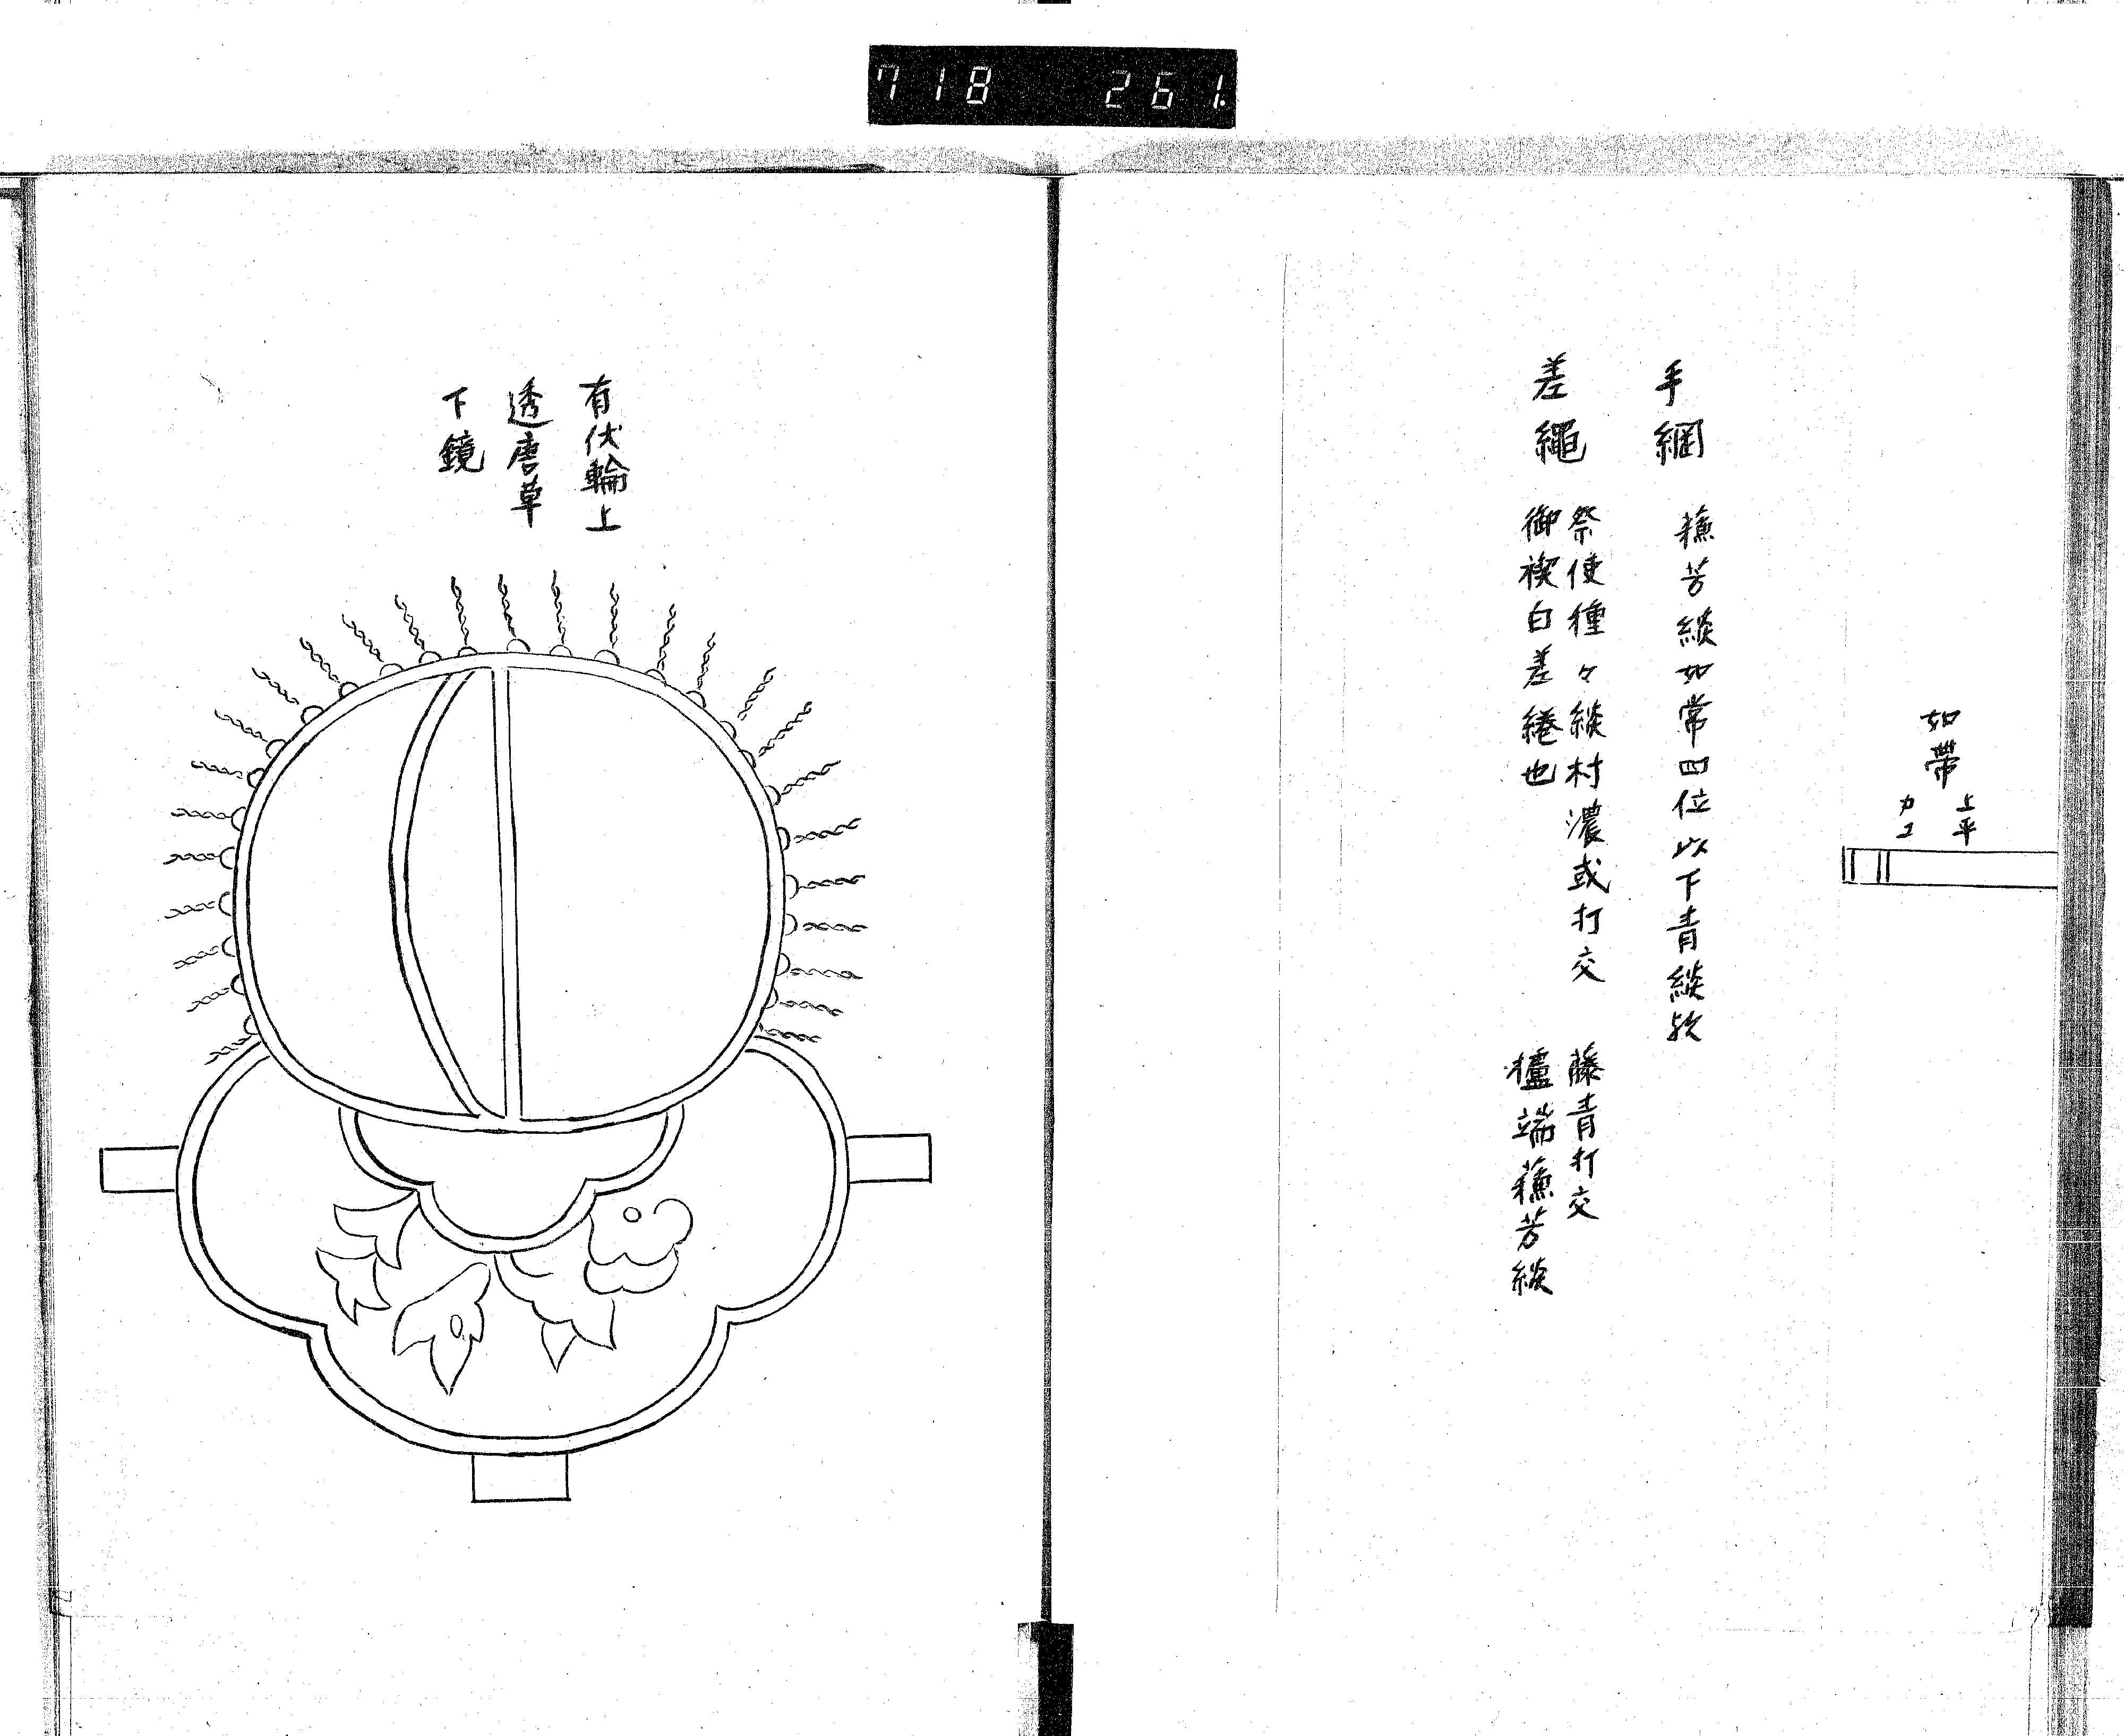 718 261.
如帶
上平
カエ
手綱 蘓芳緂如常四位以下青緂欤
差繩 祭使種々緂村濃或打交 藤青打交
御禊白差綣也 櫨端蘓芳緂
有伏輪上
透唐草
下鏡